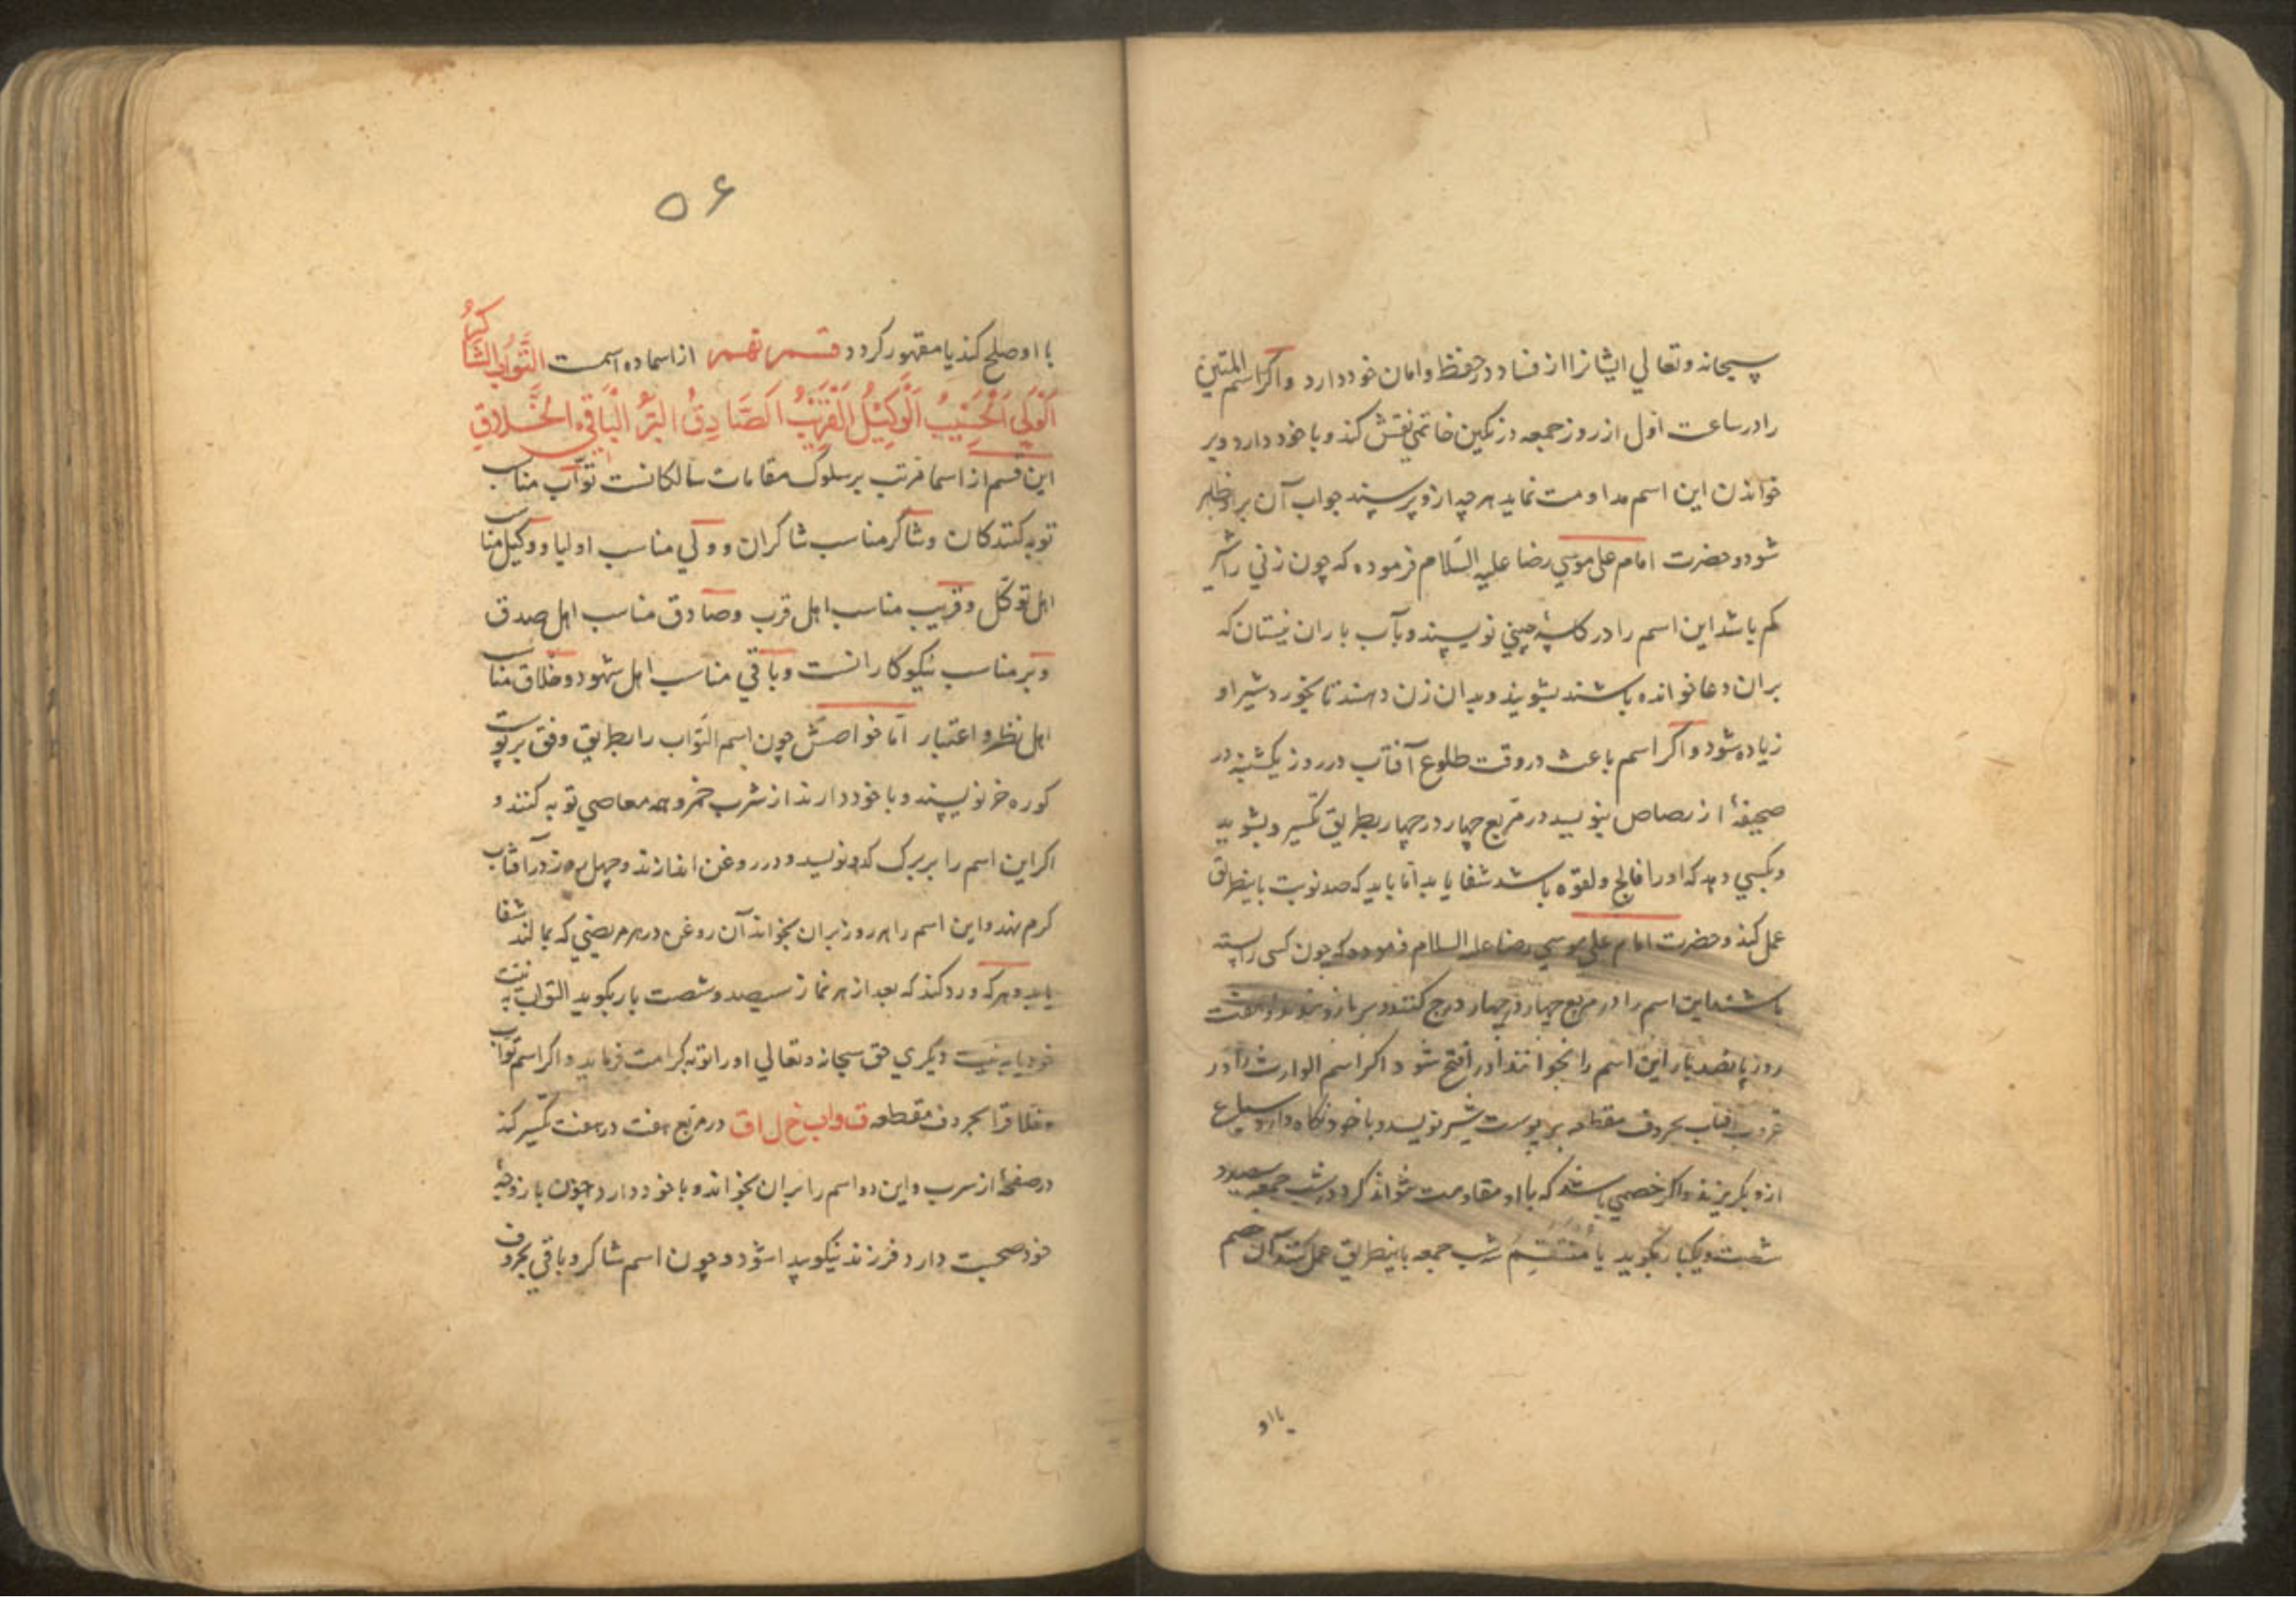 سبحانه وتعالي ایشانرا از فساد در حفظ وامان خود دارد واکر اسم المتین
را در ساعت اول از روز جمعه در نکین خاتمي نقش کند و با خود دارد وبر
خواندن این اسم مداومت نماید هر چه ازو پرسند جواب آن برو ظاهر
شود وحضرت امام علی موسي رضا علیه السلام فرموده که چون زني را شیر
کم باشد این اسم را در کاسه چیني نویسند وبآب باران نیسان که
بران دعا خوانده باشند بشویند وبدان زن دهند تا بخورد شیر او
زیاده شود واکر اسم باعث در وقت طلوع آفتاب در روز یکشنبه در
صحیفۀ از رصاص بنویسد در مربع چهار در چهار بطریق تکسیر وبشوید
وبکسي دهد که اورا فالج ولقوه باشد شفا یابد اما باید که صد نوبت باینطریق
عمل کند وحضرت امام علی موسي رضا علیه السلام فرموده که چون کسی را بسته
باشند این اسم را در مربع چهار در چهار درج کنند وبر بازو بندد وهفت
روز پانصد بار این اسم را بخوانند اورا فتح شود واکر اسم الوارث را در
غروب افتاب بحروف مقطعه بر پوست شیر نویسد وبا خود نکاه دارد سباع
ازو بکریزند واکر خصمي باشد که با او مقاومت نتواند کرد در شب جمعه سیصد
شصت ویکبار بکوید یا مُنْتَقِمُ شب جمعه باینطریق عمل کند آن خصم
با او
۵۶
با او صلح کند یا مقهور کردد قسم نهم از اسما ده اسمست التَّوَّابُ الشَّاکِرُ
اَلْوَلِي اَلْحَسِیْبُ اَلْوَکِیْلُ اَلْقَرِیْبُ اَلصَّادِقُ البَرُّ الْبَاقِي الخَلَّاقِ
این قسم از اسما مرتب بر سلوک مقامات سالکانست توّاب مناسب
توبه کنندکان وشاکر مناسب شاکران وولي مناسب اولیا ووکیل مناسب
اهل توکّل وقریب مناسب اهل قرب وصادق مناسب اهل صدق
وبر مناسب نیکوکارانست وباقي مناسب اهل شهود وخلاق مناسب
اهل نظر واعتبار امّا خواصش چون اسم التّواب را بطریق وفق بر پوست
کوره خر نویسند وبا خود دارند از شرب خمر وهمه معاصي توبه کنند و
اکر این اسم را بر برک کدو نویسد ودر روغن اندازند وچهل روز در آفتاب
کرم نهد واین اسم را هر روز بران بخواند آن روغن در هر مریضي که بمالند شفا
یابد وهر که ورد کند که بعد از هر نماز سیصد وشصت بار بکوید التواب به نیت
خود یا به نیت دیکري حق سبحانه وتعالي اورا توبه کرامت فرماید واکر اسم توّاب
وخلاقرا بحروف مقطعه ق و اب خ ل ا ق در مربع هفت در هفت تکسیر کند
در صفحۀ از سرب واین دو اسم را بران بخواند وبا خود دارد وچون با زوجۀ
خود صحبت دارد فرزند نیکو پیدا شود وچون اسم شاکر وباقي بحروف